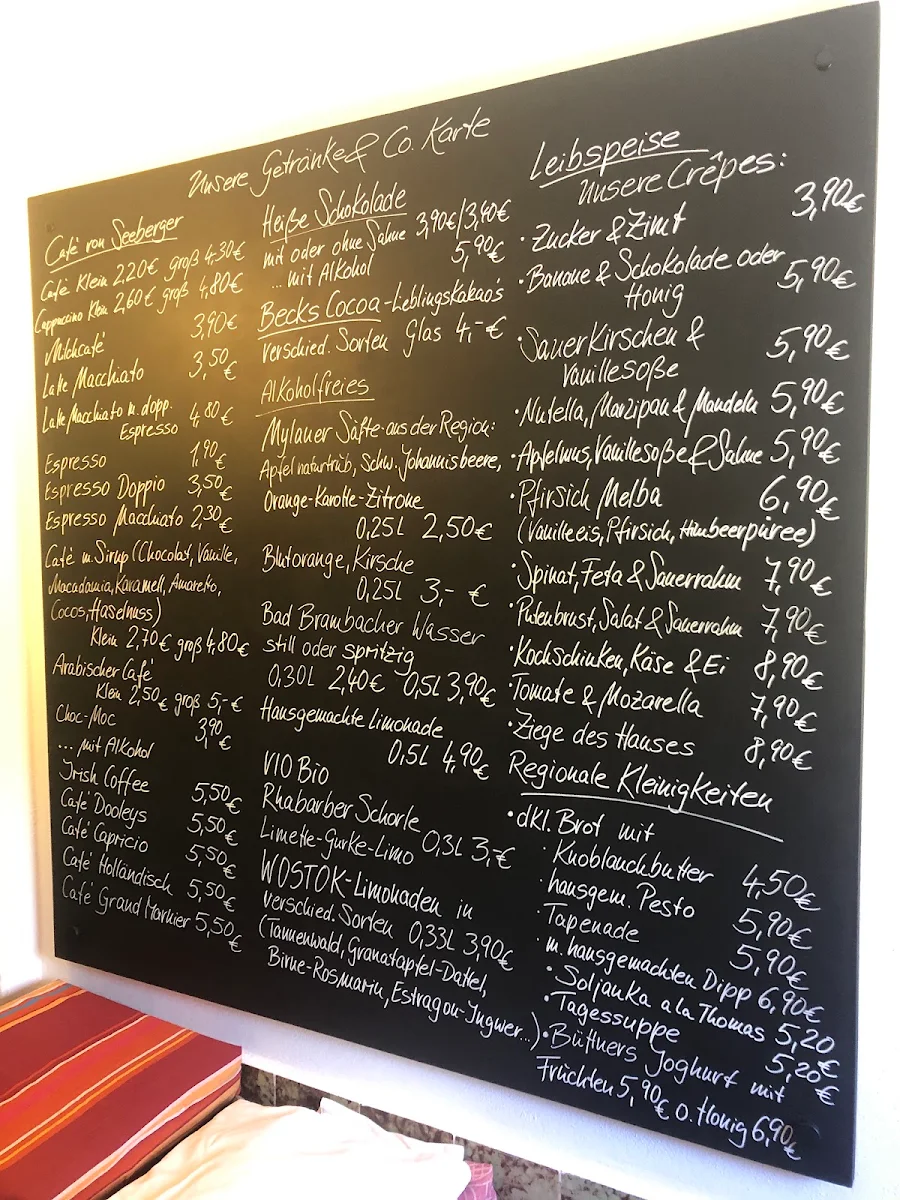 Unsere Getränke & Co. Karte
Café von Seeberger
Café Klein 2,20€ groß 4,30€
Cappuccino Klein 2,60€ groß 4,80€
Milchcafé 3,90€
Latte Macchiato 3,50€
Latte Macchiato m. dopp.
Espresso 4,80€
Espresso 1,90€
Espresso Doppio 3,50€
Espresso Macchiato 2,30€
Café m. Sirup (Chocolat, Vanille,
Macadamia, Karamell, Amaretto,
Cocos, Haselnuss)
Klein 2,70€ groß 4,80€
Arabischer Café
Klein 2,50€ groß 5,-€
Choc-Moc 3,90€
...mit Alkohol
Irish Coffee 5,50€
Café Dooleys 5,50€
Café Capricio 5,50€
Café Holländisch 5,50€
Café Grand Marnier 5,50€
Heiße Schokolade
mit oder ohne Sahne 3,90€/3,40€
...mit Alkohol 5,90€
Becks Cocoa-Leblingskakao's
verschied. Sorten Glas 4,-€
Alkoholfreies
Mylauer Säfte aus der Region:
Apfel naturtrüb, Schw. Johannisbeere,
Orange-Karotte-Zitrone
0,25l 2,50€
Blutorange, Kirsche
0,25l 3,-€
Bad Brambacher Wasser
still oder spritzig
0,30l 2,40€ 0,5l 3,90€
Hausgemachte Limonade
0,5l 4,90€
VIO Bio
Rhabarber Schorle
Limette-Gurke-Limo 0,3l 3,-€
WOSTOK-Limonaden in
verschied. Sorten 0,33l 3,90€
(Tannenwald, Granatapfel-Dattel,
Birne-Rosmarin, Estragon-Ingwer...)
Leibspeise
Unsere Crêpes:
· Zucker & Zimt 3,90€
· Banane & Schokolade oder
Honig 5,90€
· Sauerkirschen &
Vanillesoße 5,90€
· Nutella, Marzipan & Mandeln 5,90€
· Apfelmus, Vanillesoße & Sahne 5,90€
· Pfirsich Melba 6,90€
(Vanilleeis, Pfirsich, Himbeerpüree)
· Spinat, Feta & Sauerrahm 7,90€
· Putenbrust, Salat & Sauerrahm 7,90€
· Kochschinken, Käse & Ei 8,90€
· Tomate & Mozarella 7,90€
· Ziege des Hauses 8,90€
Regionale Kleinigkeiten
· dkl. Brot mit
· Knoblauchbutter 4,50€
· hausgem. Pesto 5,90€
· Tapenade 5,90€
· m. hausgemachten Dipp 6,90€
· Soljanka a la Thomas 5,20€
· Tagessuppe 5,20€
· Büttners Joghurt mit
Früchten 5,90€ o. Honig 6,90€